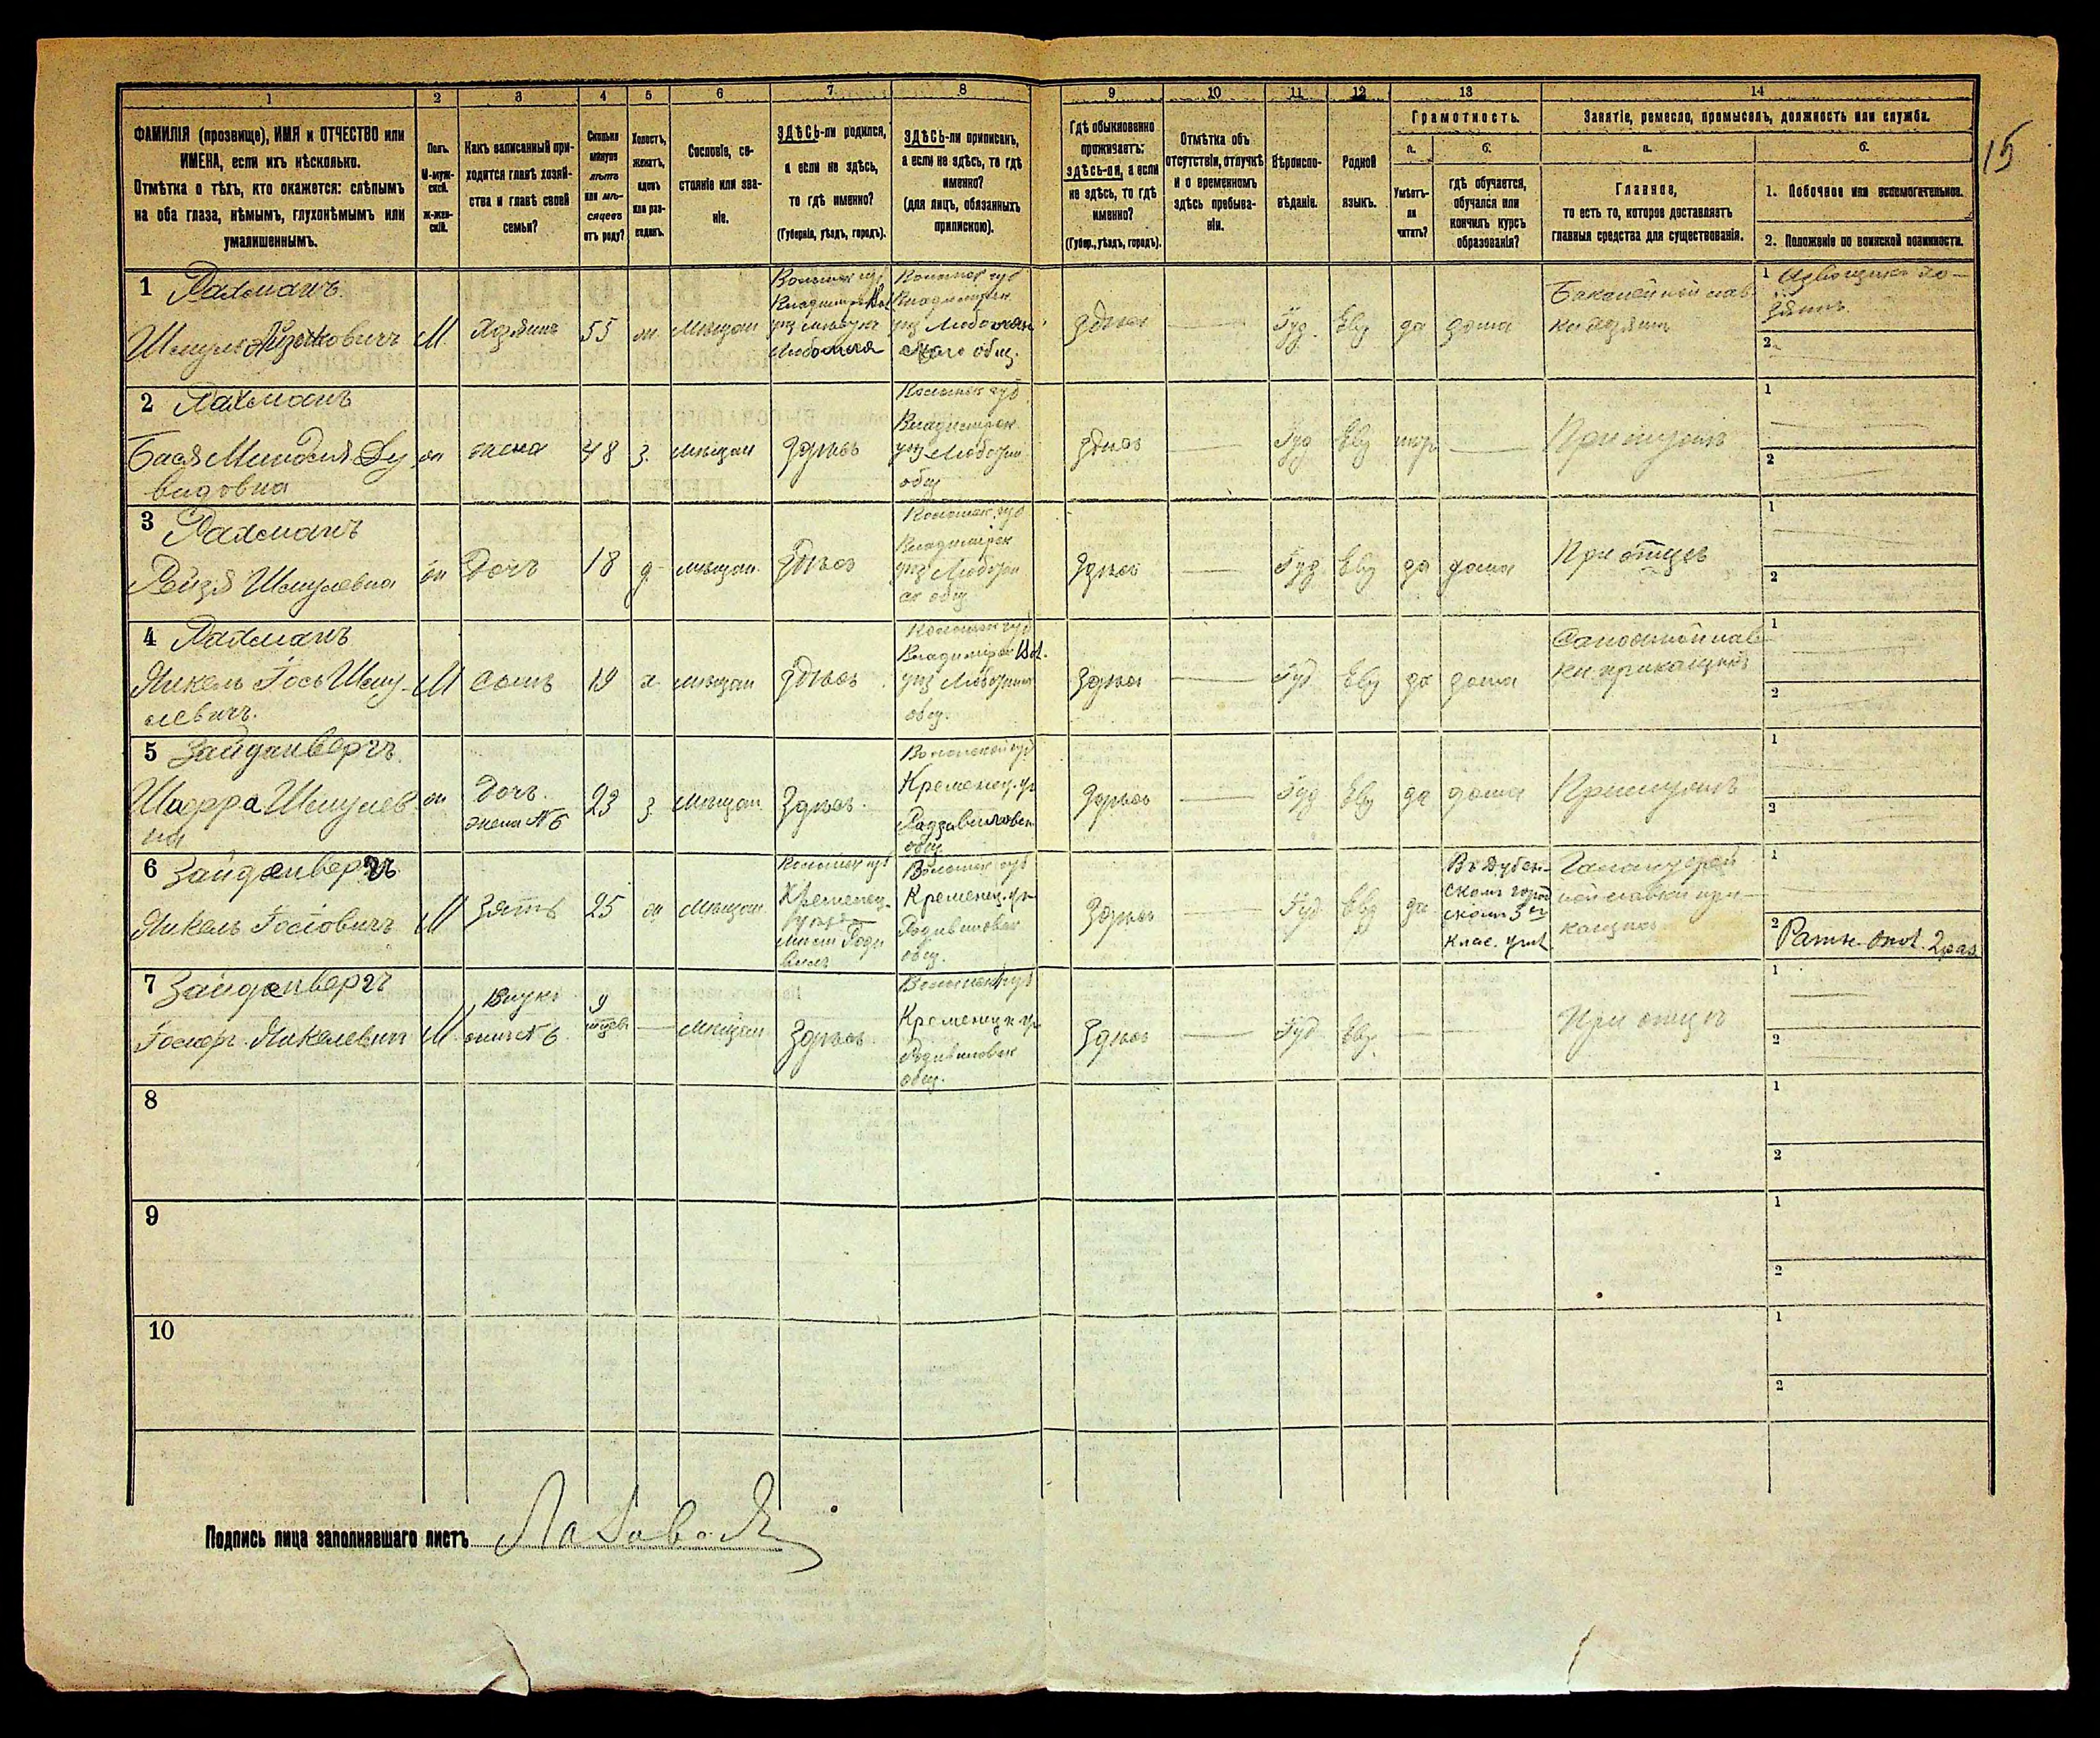 1 2 3 4 5 6 7 8 9 10 11 12 13 14
15
ФАМИЛІЯ (прозвище), ИМЯ и ОТЧЕСТВО или
ИМЕНА, если ихъ нѣсколько.
Отмѣтка о тѣхъ, кто окажется: слѣпымъ
на оба глаза, нѣмымъ, глухонѣмымъ или
умалишеннымъ.
Полъ.
М-муж-
ской.
ж-жен-
скій.
Какъ записанный при-
ходится главѣ хозяй-
ства и главѣ своей
семьи?
Сколько
минуло
лѣтъ
или мѣ-
сяцевъ
отъ роду?
Холостъ,
женатъ,
вдовъ
или раз-
веденъ.
Сословіе, со-
стояніе или зва-
ніе.
ЗДѢСЬ-ли родился,
а если не здѣсь,
то гдѣ именно?
(Губернія, уѣздъ, городъ).
ЗДѢСЬ-ли приписанъ,
а если не здѣсь, то гдѣ
именно?
(для лицъ, обязанныхъ
припискою).
Гдѣ обыкновенно
проживаетъ:
здѣсь-ли, а если
не здѣсь, то гдѣ
именно?
(Губер., уѣздъ, городъ).
Отмѣтка объ
отсутствіи, отлучкѣ
и о временномъ
здѣсь пребыва-
ніи.
Вѣроиспо-
вѣданіе.
Родной
языкъ.
Грамотность.
а.
Умѣетъ-
ли
читать?
б.
гдѣ обучается,
обучался или
кончилъ курсъ
образованія?
Занятіе, ремесло, промыселъ, должность или служба.
а.
Главное,
то есть то, которое доставляетъ
главныя средства для существованія.
б.
1. Побочное или вспомогательное.
2. Положеніе по воинской повинности.
1 Рахманъ
Шмуль Айзиковичъ
М
Хозяинъ
55
ж
мѣщан
Волынск губ
Любомля
Волынск губ
Владимірск
уѣз Любомль
общ.
здѣсь
Іуд.
Евр
да
дома
Бакалейной лав
ки хозяинъ
1 Извощикъ хо-
зяинъ
2
2 Рахманъ
Бася Миндля Ду
видовна
ж
жена
48
з.
мѣщан
здѣсь
Волынск губ
Владимірск
общ
здѣсь
Іуд
Евр
При мужѣ
1
2
3 Рахманъ
Рейзя Шмулевна
ж
Дочь
18
д
мѣщан
здѣсь
Волынск губ
Владимірск
общ
здѣсь
Іуд
Евр
да
дома
При отцѣ
1
2
4 Рахманъ
Янкель Іось Шму
левичъ.
М
Сынъ
19
х
мѣщан
здѣсь
Волынск губ
Владимірск Вол.
общ.
здѣсь
Іуд
Евр
да
дома
ки прикащикъ
1
2
5 Зайденбергъ
Шифра Шмулев
на
ж
Дочь.
жена № 6
23
з.
мѣщан
Здѣсь.
Волынской губ
Кременец. у
Радзивиловск
общ
Здѣсь
Іуд
Евр
да
дома
При мужѣ
1
2
6 Зайденбергъ
Янкель Іосіовичъ
М
Зять
25
ж
мѣщан
Волынск губ
Кременец.
Волынск губ
Кременец. у
Радзивиловск
общ.
Здѣсь
Іуд
Евр
да
Въ Дубен-
скомъ город
скомъ 3хъ
клас. учил
Галантерей
ной лавки при-
кащикъ
1
2 Ратн. опол. 2 раз
7 Зайденбергъ
Іосифъ Янкелевич
М
Внукъ
сынъ № 6
9
мѣщан
Здѣсь
Волынск губ
Кременецк у
Радзивиловск
общ.
Здѣсь
Іуд
Евр
При отцѣ
1
2
8
1
2
9
1
2
10
1
2
Подпись лица заполнявшаго листъ